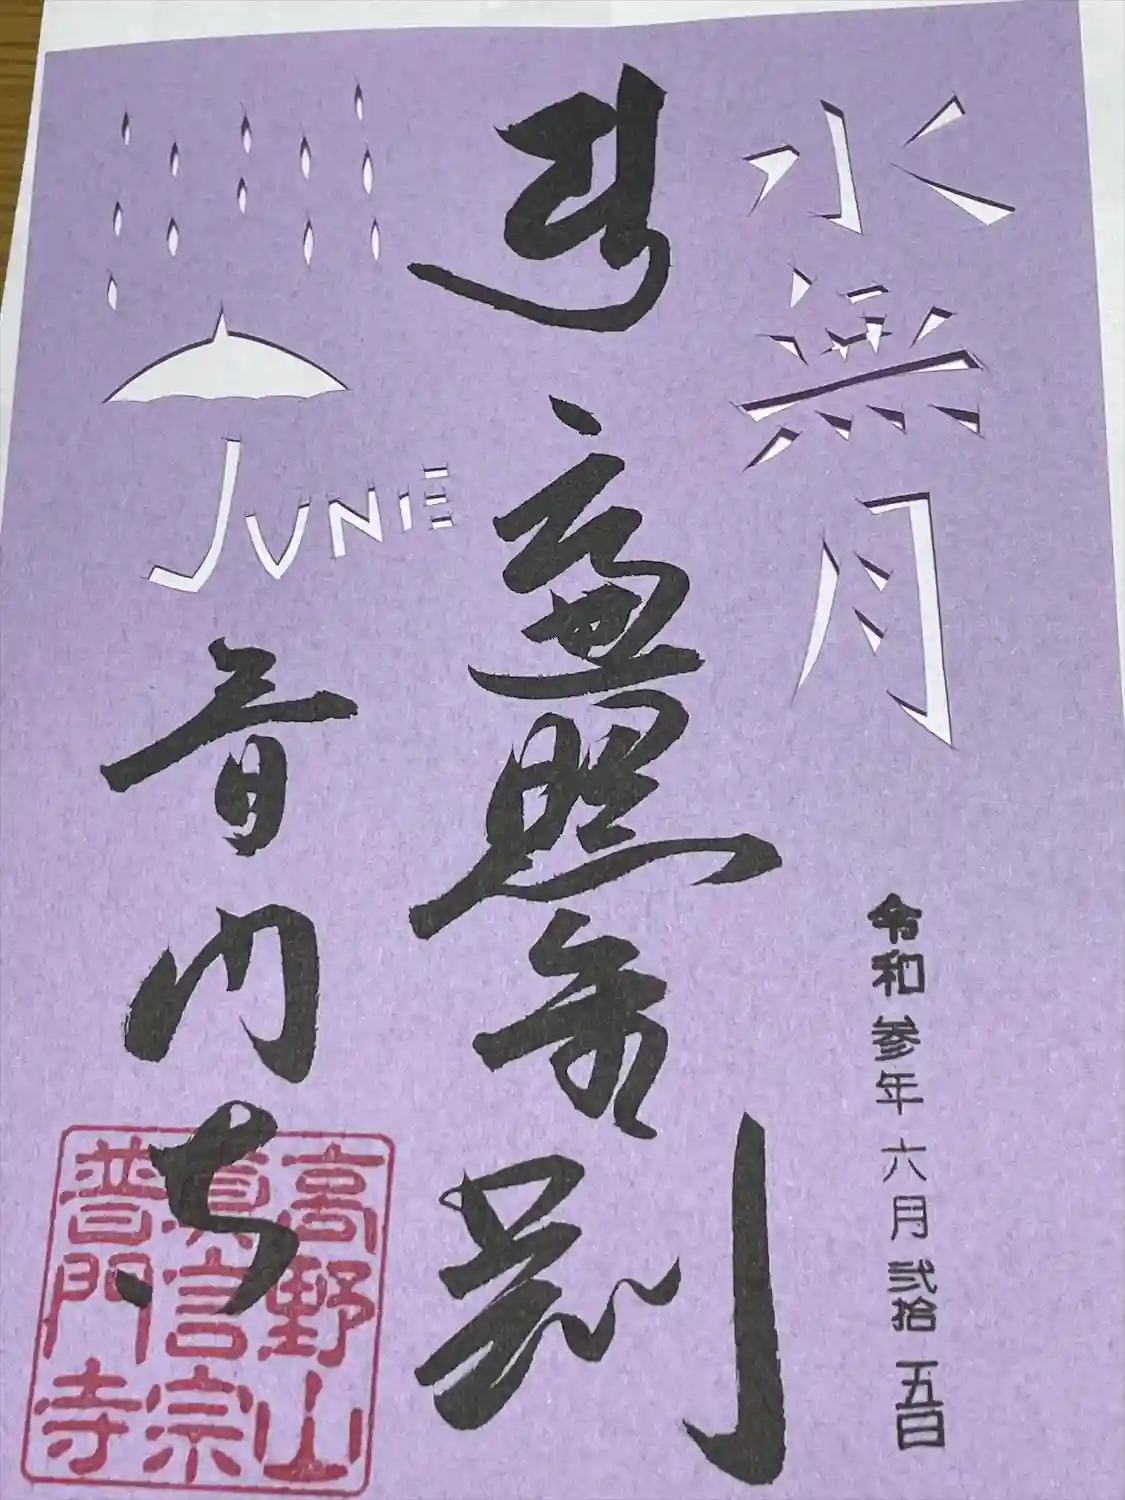 水無月
令和参年六月弐拾五日
遍照金剛
JUNE
普門寺
高野山
真言宗
普門寺